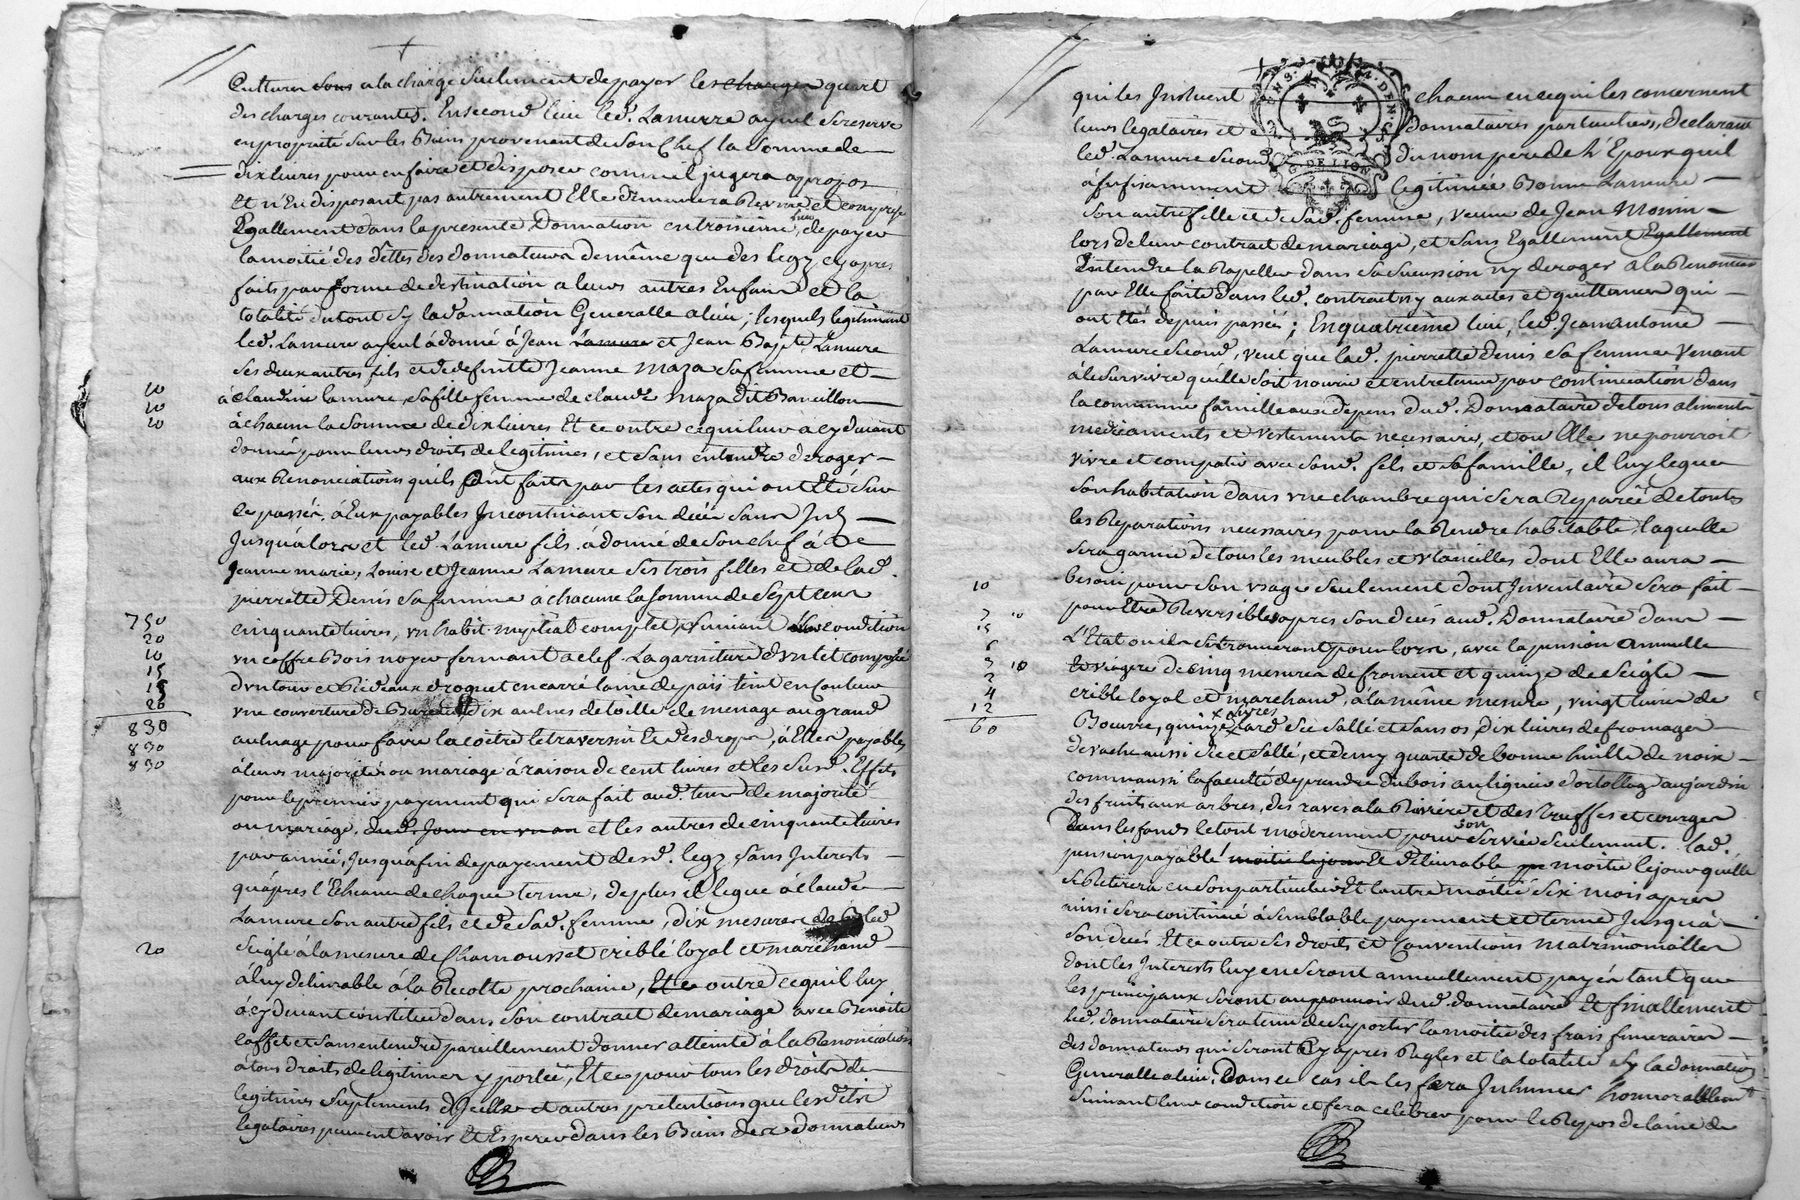 Cultures sous a la charge seulement de payer les charges quart
des charges courantes. En second lieu led. Lamurre ayeul se reserve
en proprieté sur les Biens provenant de son Chef la somme de
dix livres pour en faire et disposer comme il jugera apropos
Et n'En disposant pas autrement Elle demeurera et comprise
Egallement dans la presente Donnation en troisieme lieu de payer
la moitié des dêttes des donnateurs de même que des legz cy apres
faits par forme de destination a leurs autres Enfans et la
totalité du tout sy la donnation Generalle a lieu; lesquels legitimant
led. Lamure ayeul à donné à Jean Lamure et Jean Bapte. Lamure
ses deux autres fils et de deffuntte Jeanne Maza sa femme et
10
à Claudine lamure, sa fille femme de claude Maza dit Barcillon
10
à chacun la somme de dix livres Et ce outre ce quil leur a cy devant
20
donné pour leurs droits de legitimes, et sans entendre deroger
aux Renonciations quils ont faits par les actes qui ont Eté sur
ce passés, à Eux payables Incontinant son décès sans
Jusqualors et led. Lamure fils à donné de son chef à
Jeanne marie, Louise et Jeanne Lamure ses trois filles et de lad.
pierrette Denis sa femme a chacune la somme de sept cens
750
cinquante livres, un habit nuptial complet, suivant condition
20
un coffre Bois noyer fermant a clef. La garniture d'un lit composée
10
15
d'un tour et Rideaux droguet en carré laine de païs teint en couleur
15
20
une couverture de dix aulnes de toille de menage au grand
830
aulnage pour faire la coitre le traversin Et desdrops, à Elles payables
830
830
à leurs majorités ou mariage à raison de cent livres et les susd. Effets
pour le premier payement qui sera fait aud. tems de majorité
ou mariage, et les autres de cinquante livres
par année, Jusquà fin de payement desd. legz, sans Interests
quapres l'Echeance de chaque terme, de plus il legue à claude
Lamure son autre fils et de sad. femme, dix mesures de Bled
20
seigle à la mesure de Chamousset criblé loyal et marchand
à luy delivrable à la Recolte prochaine, Et ce outre ce quil luy
à cy devant constitué dans son contrat de mariage avec Benoite
et sans entendre pareillement donner atteinte à la Renonciation
à tous droits de legitimes y portée, Et ce pour tous les droits de
legitimes suplements d'Jcelle et autres pretentions que lesdits
legataires peuvent avoir Et Esperer dans les Biens des donnateurs
qui les Jnstituent chacun en ce qui les concernent
leurs legataires et donnataires particuliers, declarant
led. Lamure second du nom pere de l'Epoux quil
à sufisamment legitimée Bonne Lamure
son autre fille et de sad. femme, veuve de Jean Monin
lors de leur contract de mariage, et sans Egallement Egallement
Entendre la Rapeller dans sa succession ny deroger a la Renonciation
par Elle faite dans led. contract ny aux actes et quittances qui
ont Etés depuis passés; En quatrième lieu, led. Jean antoine
Lamure second, veut que lad. pierrette Denis sa femme Venant
à le survivre quelle soit nourie et entretenue par continuation dans
la commune famille aux dépens dud. Donnataire de tous aliments
medicaments et vestements necessaires, et ou Elle ne pourroit
vivre et compatir avec sond. fils et sa famille, il luy legue
son habitation dans une chambre qui sera Reparée de toutes
les Reparations necessaires pour la Rendre habitable, laquelle
sera garnie de tous les meubles et Ustancilles dont Elle aura
10
besoin pour son usage seulement dont Inventaire sera fait
7 10
pour Etre Reversibles apres son décès aud. Donnataire dans
15
6
L'Etat ou ils se trouveront pour lors, avec la pension annuelle
3 10
et viagere de cinq mesures de froment et quinze de seigle
2
4
crible loyal et marchand, à la même mesure, vingt livres de
12
60
Beurre, quinze livres Lard sec sallé et sans os Dix livres de fromager
de vache aussi sec et sallé, et demy quarte de bonne huille de noix
comm aussi la faculté de prendre du bois au ligniер d'ortollag au jardin
des fruits aux arbres, des raves a la Riviere et des truffes et courges
Dans les fonds le tout moderement pour son service seulement. lad.
pension payable moitié le jour Et delivrable moitié le jour quelle
se Retirera en son particulier Et l'autre moitié six mois apres
ainsi sera continué à semblable payement et terme Jusquà
son décès. Et ce outre ses droits et Conventions matrimonialles
dont les Interests luy en seront annuellement payés tant que
les principaux seront au pouvoir dud. donnataire Et finallement
led. donnataire sera tenu de suporter la moitié des frais funeraires
des donnateurs qui seront Cy apres Regles et la totalité sy la donnation
Generalle a lieu, Dans ce cas il les fera Inhumer honnorablement
suivant leur condition et fera celebrer pour le Repos de lame de